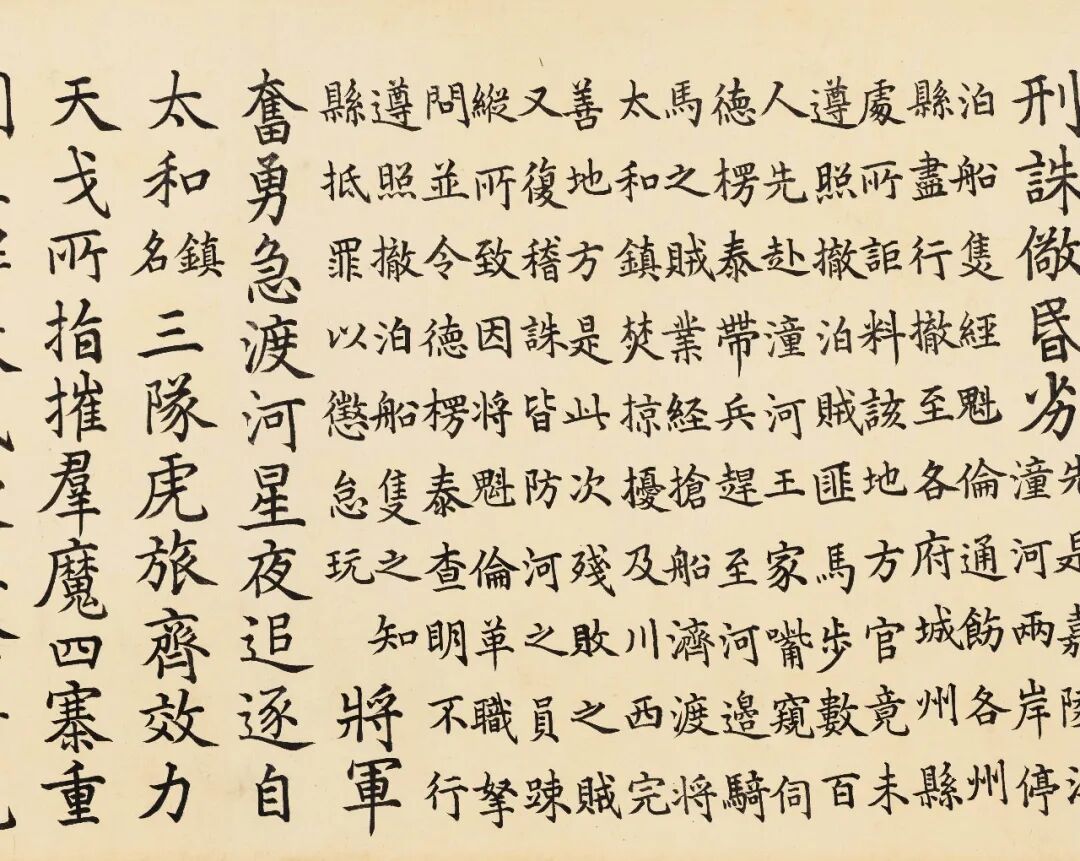 刑誅儆昏劣
先是嘉陵江
潼河兩岸停
泊船隻經魁倫通飭各州
縣盡行撤至各府城州縣
處所詎料該地方官竟未
遵照撤泊賊匪馬步數百
人先赴潼河王家嘴窺伺
德楞泰帶兵趕至河邊騎
馬之賊業經搶船濟渡將
太和鎮焚掠擾及川西完
善地方是此次殘敗之賊
又復稽誅皆防河之員踈
縱所致因將魁倫革職拏
問並令德楞泰查明不行
遵照撤泊船隻之知
縣抵罪以懲怠玩
將軍
奮勇急渡河星夜追逐自
太和鎮名三隊虎旅齊效力
天戈所指摧羣魔四寨重